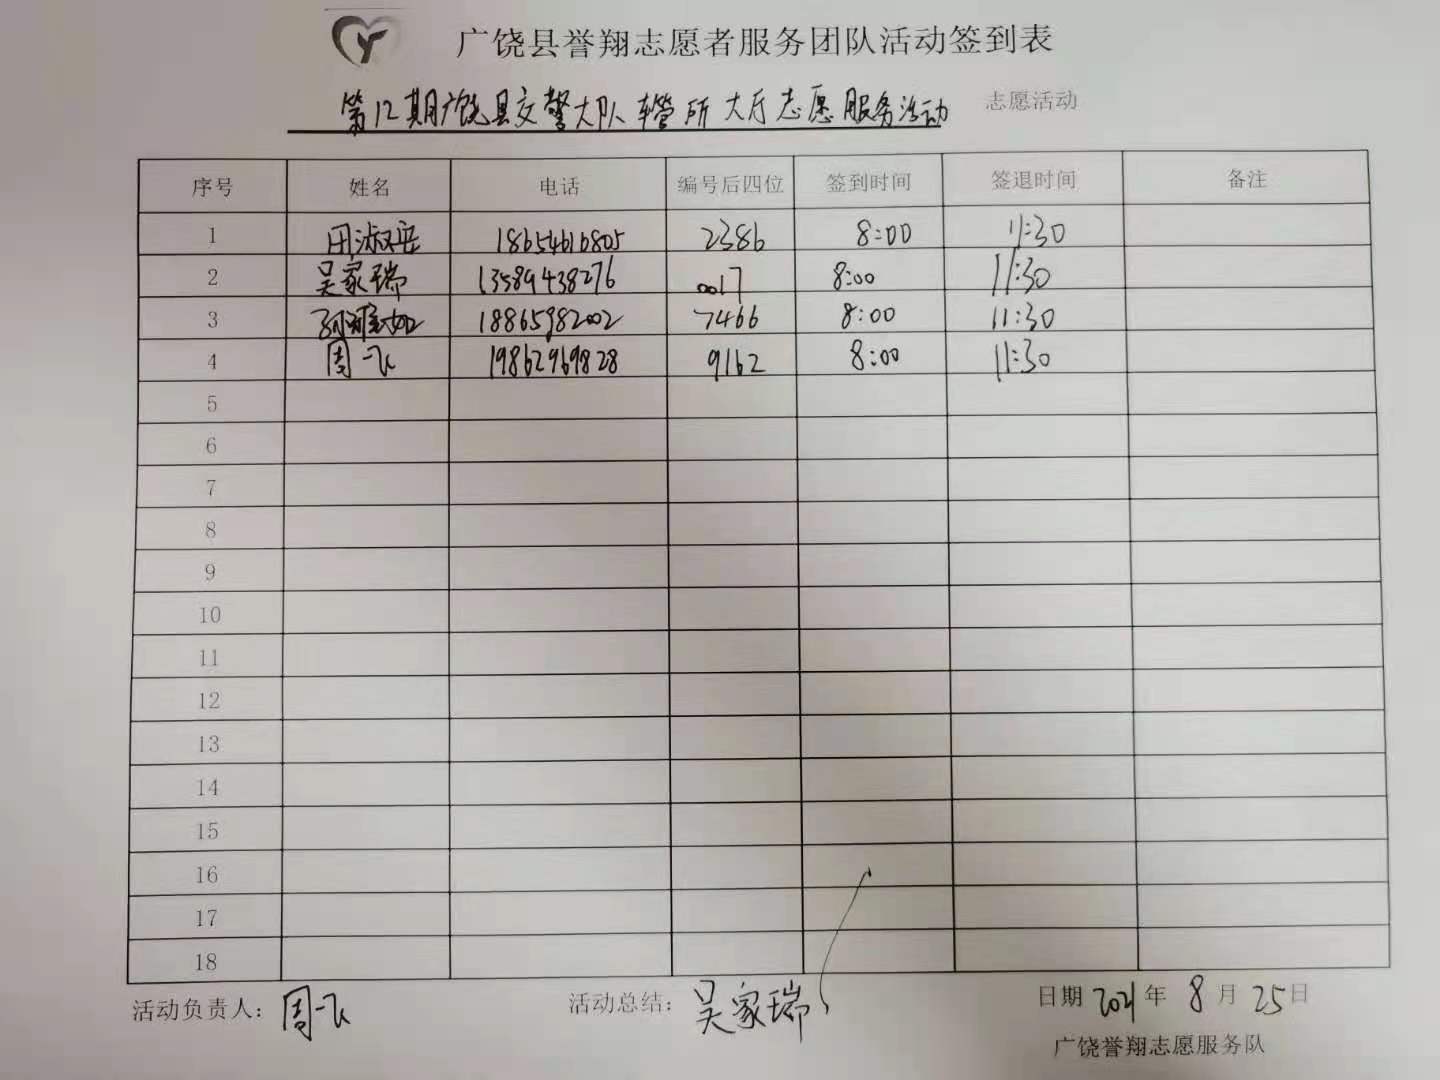 广饶县誉翔志愿者服务团队活动签到表
第12期广饶县交警大队车管所大厅志愿服务活动 志愿活动
序号 姓名 电话 编号后四位 签到时间 签退时间 备注
1 18654616805 2386 8:00 11:30
2 吴家瑞 13589438276 0017 8:00 11:30
3 18865982002 7466 8:00 11:30
4 周一飞 19862969828 9162 8:00 11:30
5
6
7
8
9
10
11
12
13
14
15
16
17
18
活动负责人: 周一飞 活动总结: 吴家瑞 日期 2021年 8月 25日
广饶誉翔志愿服务队